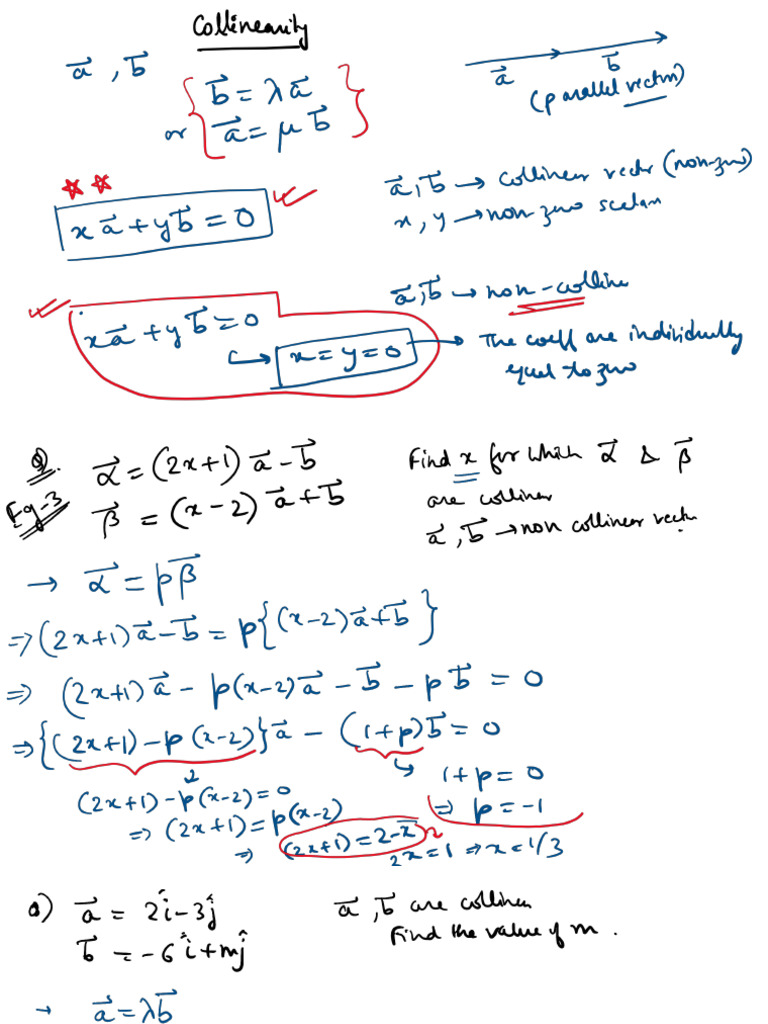 Collinearity
a⃗ , b⃗
b⃗ = λ a⃗
or a⃗ = μ b⃗
a⃗ b⃗
(parallel vectors)
x a⃗ + y b⃗ = 0
a⃗, b⃗ → collinear vectr (non-zero)
x, y → non-zero scalar
x a⃗ + y b⃗ = 0
↳ x = y = 0
a⃗, b⃗ → non-colline
→ The coeff are individually
equal to zero
Q.
Eg-3
α⃗ = (2x+1) a⃗ - b⃗
β⃗ = (x-2) a⃗ + b⃗
Find x for which α⃗ & β⃗
are colliner
a⃗, b⃗ → non collinear vectr
→ α⃗ = p β⃗
⇒ (2x+1) a⃗ - b⃗ = p{(x-2) a⃗ + b⃗}
⇒ (2x+1) a⃗ - p(x-2) a⃗ - b⃗ - p b⃗ = 0
⇒ {(2x+1) - p(x-2)} a⃗ - (1+p) b⃗ = 0
(2x+1) - p(x-2) = 0
⇒ (2x+1) = p(x-2)
⇒ (2x+1) = 2-x
↳ 1+p = 0
⇒ p = -1
2x = 1 ⇒ x = 1/3
Q) a⃗ = 2î - 3ĵ
b⃗ = -6î + mĵ
a⃗, b⃗ are colliner
Find the value of m.
→ a⃗ = λ b⃗